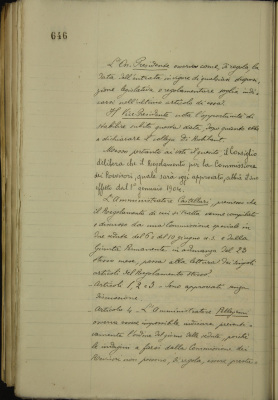 646
L'On. Presidente osserva come, di regola, la
data dell'entrata in vigore di qualsiasi dispo-
sizione legislativa o regolamentare soglia indi-
carsi nell'ultimo articolo di essa.
Il Vice Presidente nota l'opportunità di
stabilire subito questa data, dopo quando ebbe
a dichiarare il collega
Messo pertanto ai voti il quesito il Consiglio
delibera che il Regolamento per la Commissione
dei Benvisori, quale sarà oggi approvato, abbia il suo
effetto dal 1° gennaio 1904.
L'Amministratore Castellari, premesso che
il Regolamento di cui si tratta venne compilato
e discusso da una Commissione speciale in
due sedute del 5 e del 10 giugno u.s. e dalla
Giunta Permanente in adunanza del 23
stesso mese, passa alla lettura dei singoli
articoli del Regolamento stesso.
Articoli 1, 2 e 3 - Sono approvati senza
discussione.
Articolo 4. - L'Amministratore Pellegrini
osserva come impossibile indicare preventi-
vamente l'ordine del giorno delle sedute, poichè
le indagini a farsi dalla Commissione dei
non possono, di regola, essere